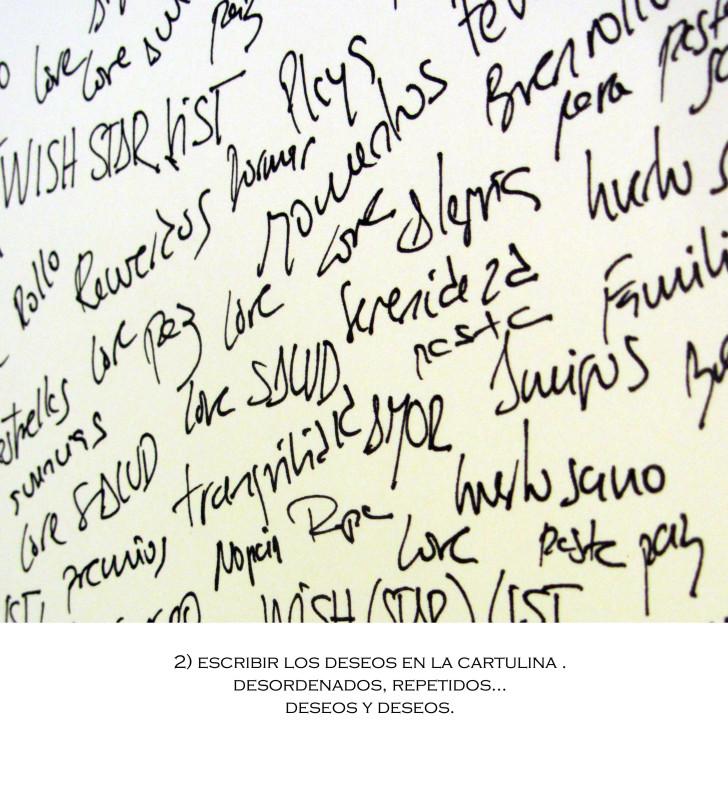 love love paz
WISH STAR LIST Plays
Dormir Momentos Buen rollo
para pasta
Rollo Recuerdos love Alegria huerto
love paz love Serenidad
estrellas pasta Familia
love SALUD Amigos
love SALUD tranquilidad AMOR
premios Ropa love huerto sano
pasta paz
WISH (STAR) LIST
2) ESCRIBIR LOS DESEOS EN LA CARTULINA .
DESORDENADOS, REPETIDOS...
DESEOS Y DESEOS.